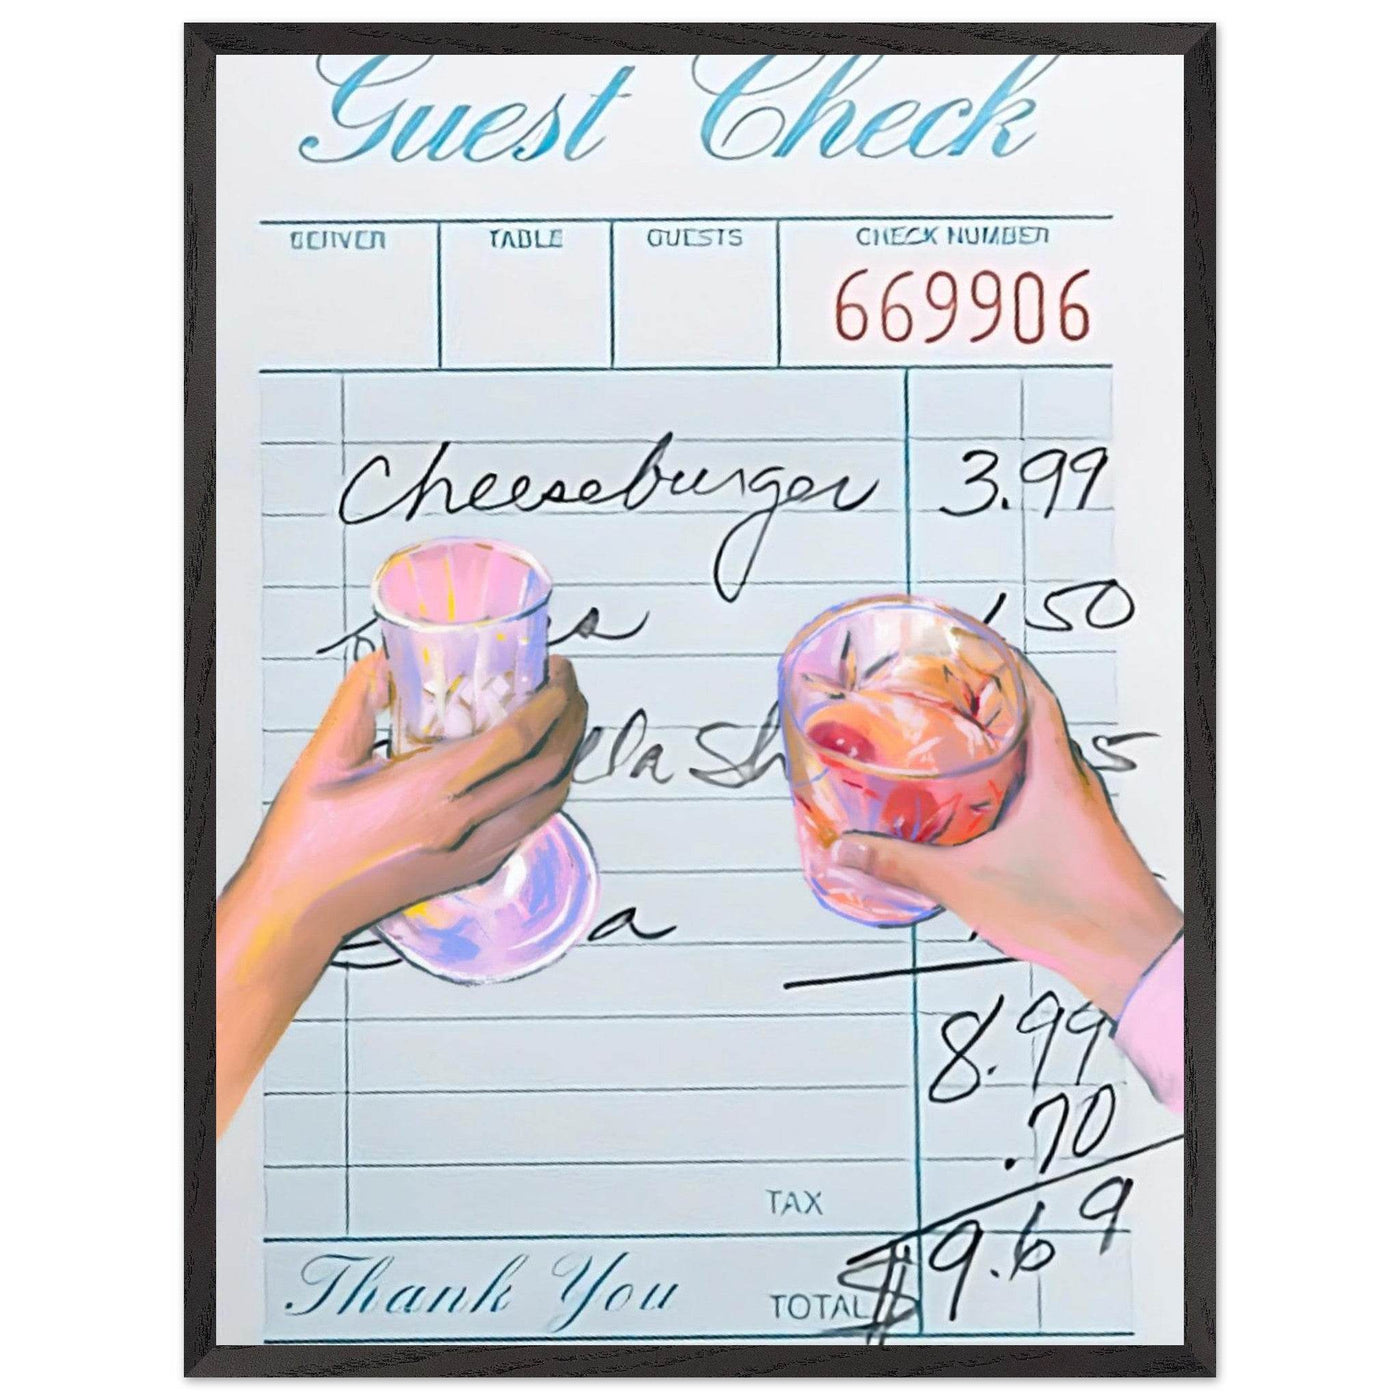 Guest Check
TABLE GUESTS CHECK NUMBER
669906
Cheeseburger 3.99
s 1.50
lla Sh 5
a
8.99
.70
TAX
$9.69
Thank You TOTAL